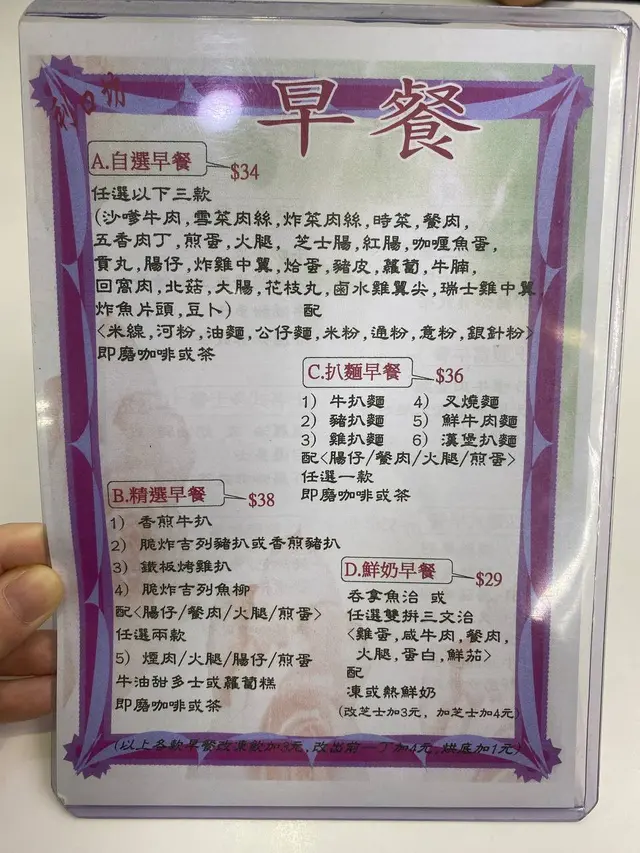 早餐
A.自選早餐 $34
任選以下三款
(沙嗲牛肉,雪菜肉絲,炸菜肉絲,時菜,餐肉,
五香肉丁,煎蛋,火腿, 芝士腸,紅腸,咖喱魚蛋,
貢丸,腸仔,炸雞中翼,烚蛋,豬皮,蘿蔔,牛腩,
回窩肉,北菇,大腸,花枝丸,鹵水雞翼尖,瑞士雞中翼
炸魚片頭,豆卜) 配
<米線,河粉,油麵,公仔麵,米粉,通粉,意粉,銀針粉>
即磨咖啡或茶
C.扒麵早餐 $36
1) 牛扒麵 4) 叉燒麵
2) 豬扒麵 5) 鮮牛肉麵
3) 雞扒麵 6) 漢堡扒麵
配<腸仔/餐肉/火腿/煎蛋>
任選一款
即磨咖啡或茶
B.精選早餐 $38
1) 香煎牛扒
2) 脆炸吉列豬扒或香煎豬扒
3) 鐵板烤雞扒
4) 脆炸吉列魚柳
配<腸仔/餐肉/火腿/煎蛋>
任選兩款
5) 煙肉/火腿/腸仔/煎蛋
牛油甜多士或蘿蔔糕
即磨咖啡或茶
D.鮮奶早餐 $29
吞拿魚治 或
任選雙拼三文治
<雞蛋,咸牛肉,餐肉,
火腿,蛋白,鮮茄>
配
凍或熱鮮奶
(改芝士加3元, 加芝士加4元)
(以上各款早餐改凍飲加3元,改出前一丁加4元,烘底加1元)